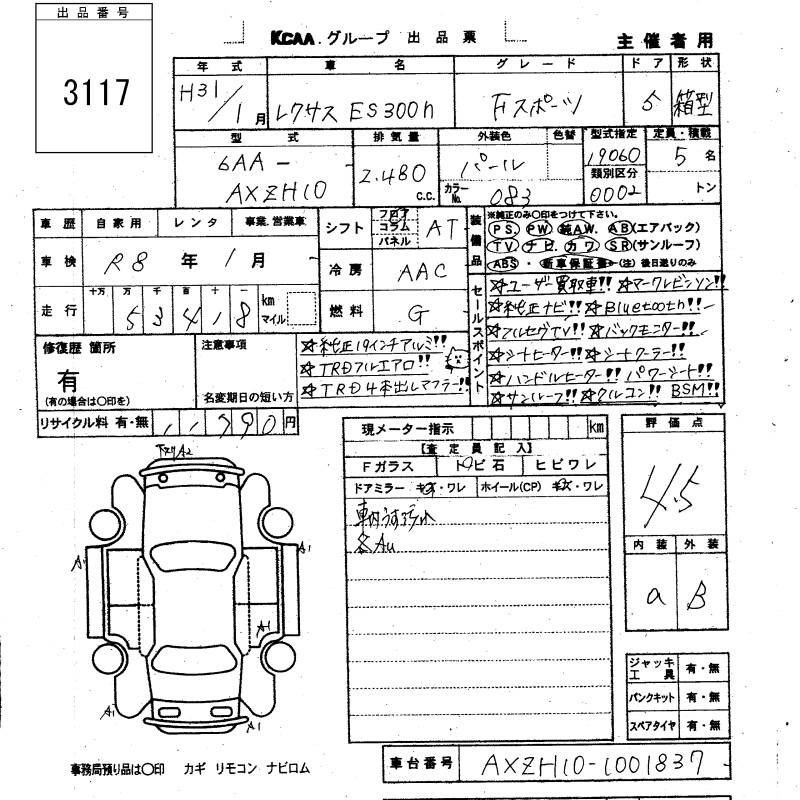 出品番号
3117
KCAA グループ 出品票
主催者用
年式 車名 グレード ドア 形状
H31/1月 レクサス ES300h Fスポーツ 5 箱型
型式 排気量 外装色 色替 型式指定 定員・積載
6AA-
AXZH10
2.480 c.c.
パール
カラーNo. 083
19060
類別区分
0002
5名
トン
車歴 自家用 レンタ 事業.営業車
車検 R8年1月
走行 十万 万 千 百 十 一
53418 km マイル
シフト フロア コラム パネル AT
冷房 AAC
燃料 G
装備品
※純正のみ〇印をつけて下さい。
PS PW 純AW AB(エアバック)
TV ナビ カワ SR(サンルーフ)
ABS・新車保証書(注)後日送りのみ
セールスポイント
☆ユーザー買取車!!☆マークレビンソン!!
☆純正ナビ!!☆Bluetooth!!
☆フルセグTV!!☆バックモニター!!
☆シートヒーター!!☆シートクーラー!!
☆ハンドルヒーター!!パワーシート!!
☆サンルーフ!!☆クルコン!!BSM!!
修復歴 箇所
有
(有の場合は〇印を)
注意事項
名変期日の短い方
☆純正19インチアルミ!!
☆TRDフルエアロ!!
☆TRD4本出しマフラー!!
リサイクル料 有・無 11990円
現メーター指示 km
【査定員記入】
Fガラス トビ石 ヒビワレ
ドアミラー キズ・ワレ ホイール(CP) キズ・ワレ
各AU
評価点
4.5
内装 外装
a B
A2
A1
A1
A1
A1
A1
ジャッキ工具 有・無
パンクキット 有・無
スペアタイヤ 有・無
事務局預り品は〇印 カギ リモコン ナビロム
車台番号 AXZH10-1001837